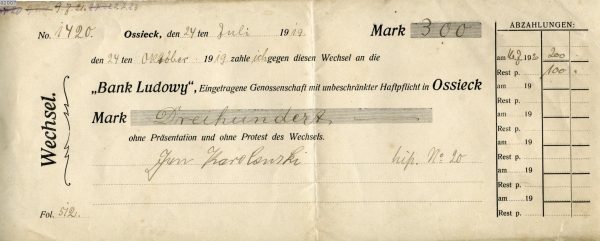 No. 1420. Ossieck, den 24ten Juli 1919. Mark 300
den 24ten Oktober 1919 zahle ich gegen diesen Wechsel an die
„Bank Ludowy", Eingetragene Genossenschaft mit unbeschränkter Haftpflicht in Ossieck
Mark Dreihundert
ohne Präsentation und ohne Protest des Wechsels.
Jan hip. No 20
Wechsel.
Fol. 512.
ABZAHLUNGEN:
am 1920 200
Rest p. 100
am 19
Rest p.
am 19
Rest p.
am 19
Rest p.
am 19
Rest p.
am 19
Rest p.